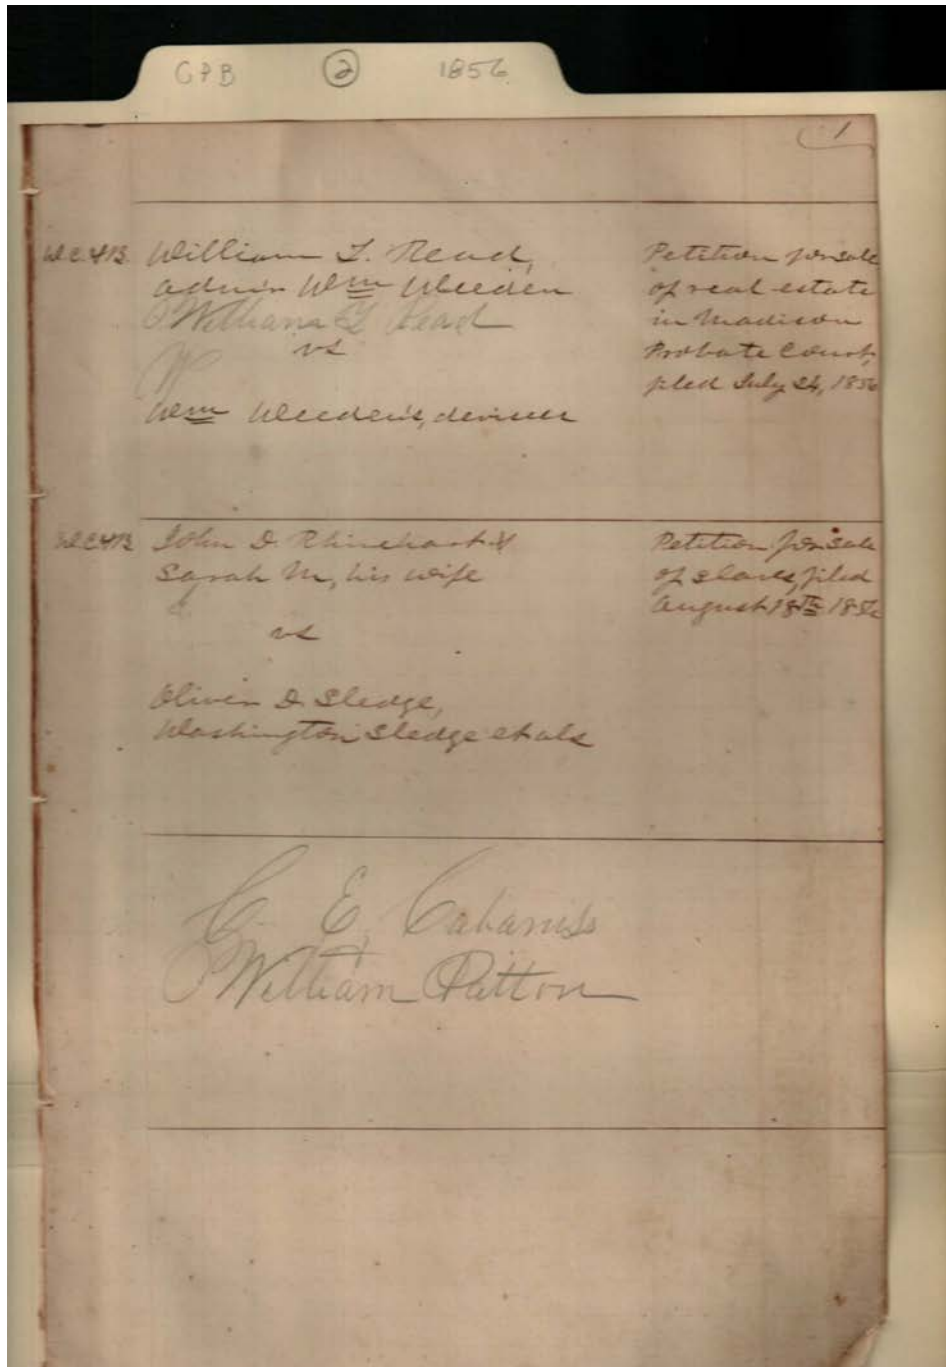 CPB 2 1856
1
W.C.&B. William T. Read,
adm'r Wm Weeden
William T Read
vs
W
Wm Weeden's, devisees
Petition for sale
of real estate
in Madison
Probate Court,
filed July 24, 1856
W.C.&B John D. Rhinehart &
Sarah M, his wife
vs
Oliver D. Sledge,
Washington Sledge et als
Petition for sale
of slaves, filed
August 18th 1856
C. E. Cabaniss
William Patton